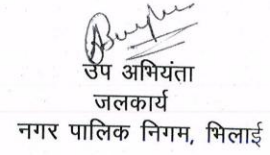 उप अभियंता
जलकार्य
नगर पालिक निगम, भिलाई